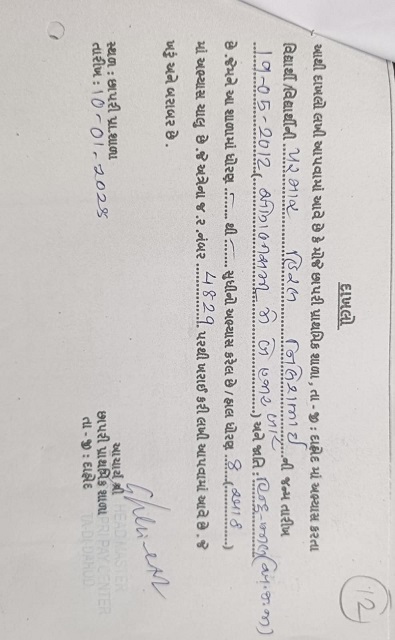 12
દાખલો
આથી દાખલો લખી આપવામાં આવે છે કે મોજે છાપરી પ્રાથમિક શાળા, તા - જી: દાહોદ માં અભ્યાસ કરતા
વિદ્યાર્થી/વિદ્યાર્થીની પરમાર ની જન્મ તારીખ
19-05-2012 અને જાતિ:
છે. જેમને આ શાળામાં ધોરણ થી સુધીનો અભ્યાસ કરેલ છે / હાલ ધોરણ 8 (આઠ)
માં અભ્યાસ ચાલુ છે. જે અત્રેના જ.ર.નંબર 4829 પરથી ખરાઈ કરી લખી આપવામાં આવે છે. જે
ખરૂં અને બરાબર છે.
સ્થળ: છાપરી પ્રા.શાળા
તારીખ: 10-01-2025
આચાર્ય શ્રી
છાપરી પ્રાથમિક શાળા
તા - જી: દાહોદ
HEADMASTER
PAY CENTER